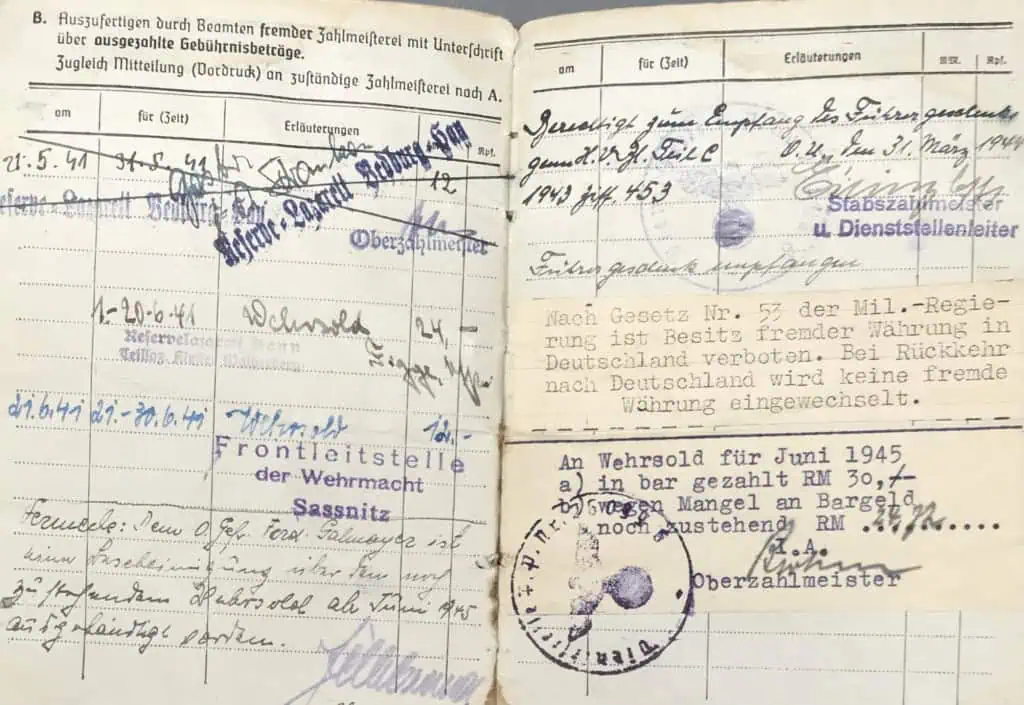 B. Auszufertigen durch Beamten fremder Zahlmeisterei mit Unterschrift
über ausgezahlte Gebührnisbeträge.
Zugleich Mitteilung (Vordruck) an zuständige Zahlmeisterei nach A.
am für (Zeit) Erläuterungen Rpf.
21.5.41 31.5.41
12
Reserve-Lazarett Bedburg-Hau
Reserve-Lazarett Bedburg-Hau
Oberzahlmeister
1.-20.6.41 Wehrsold 24,-
Reservelazarett Bonn
21.6.41 21.-30.6.41 Wehrsold 12.-
Frontleitstelle
der Wehrmacht
Sassnitz
Vermerk: Dem O.Gef. Ferd. Galmayer ist
eine Bescheinigung über den noch
zustehendem Wehrsold ab Juni 1945
ausgehändigt worden.
am für (Zeit) Erläuterungen RM. Rpf.
Berechtigt zum Empfang des Führergeschenks
gem. H.V.Bl. Teil C O.U., den 31. März 1944
1943 Ziff. 453
Stabszahlmeister
u. Dienststellenleiter
Führergeschenk empfangen
Nach Gesetz Nr. 53 der Mil.-Regie-
rung ist Besitz fremder Währung in
Deutschland verboten. Bei Rückkehr
nach Deutschland wird keine fremde
Währung eingewechselt.
An Wehrsold für Juni 1945
a) in bar gezahlt RM 30,-
b) wegen Mangel an Bargeld
noch zustehend RM
I.A.
Oberzahlmeister